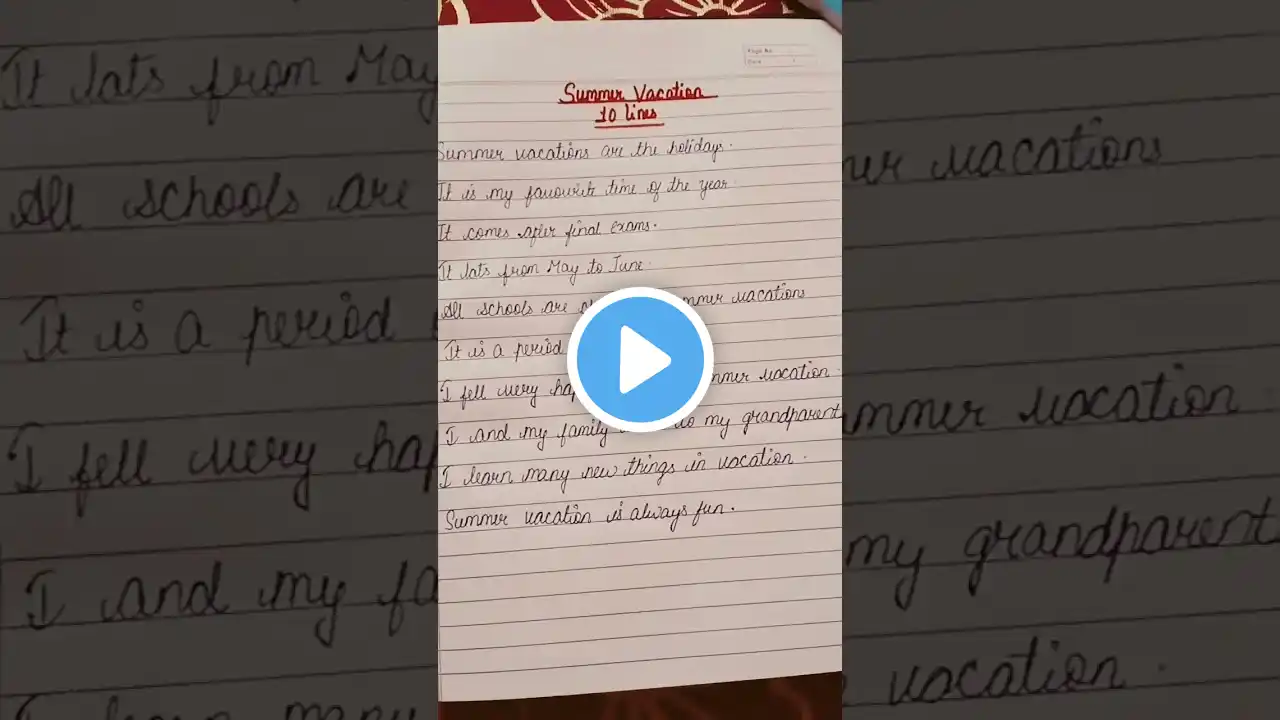 Page No.
Date
Summer Vacation
10 lines
Summer vacations are the holidays.
It is my favourite time of the year.
It comes after final Exams.
It lats from May to June.
All schools are vacations
It is a period
I fell very vacation.
I and my family to my grandparent
I learn many new things in vacation.
Summer vacation is always fun.